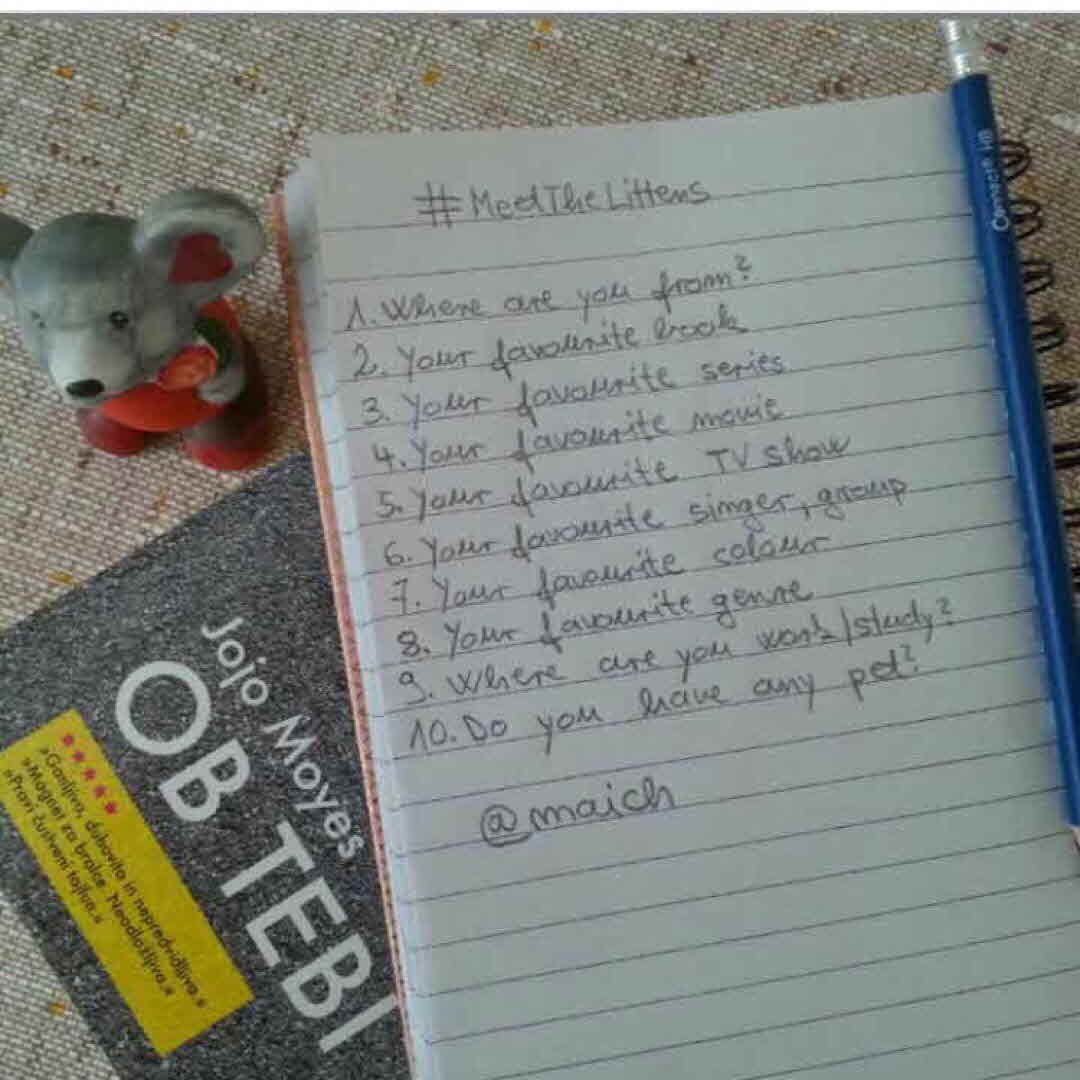 #MeetTheLittens
1. Where are you from?
2. Your favourite book
3. Your favourite series
4. Your favourite movie
5. Your favourite TV show
6. Your favourite singer, group
7. Your favourite colour
8. Your favourite genre
9. Where are you work/study?
10. Do you have any pet?
@maich
Connecte HB
Jojo Moyes
OB TEBI
»Ganljivo, duhovito in nepredvidljivo.«
»Magnet za bralce. Neodložljivo.«
»Pravi čustveni tajfun.«